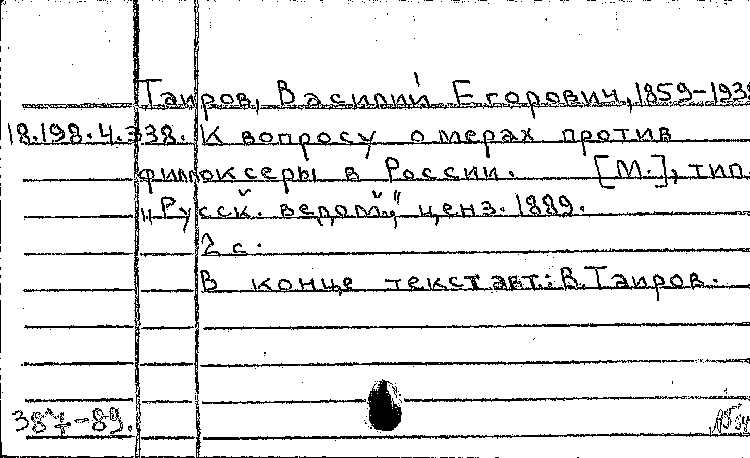 Таиров, Василий Егорович, 1859-1938
18.198.4.338. К вопросу о мерах против
филлоксеры в России. [М.], тип.
"Русск. ведом.", ценз. 1889.
2 с.
В конце текста авт.: В. Таиров.